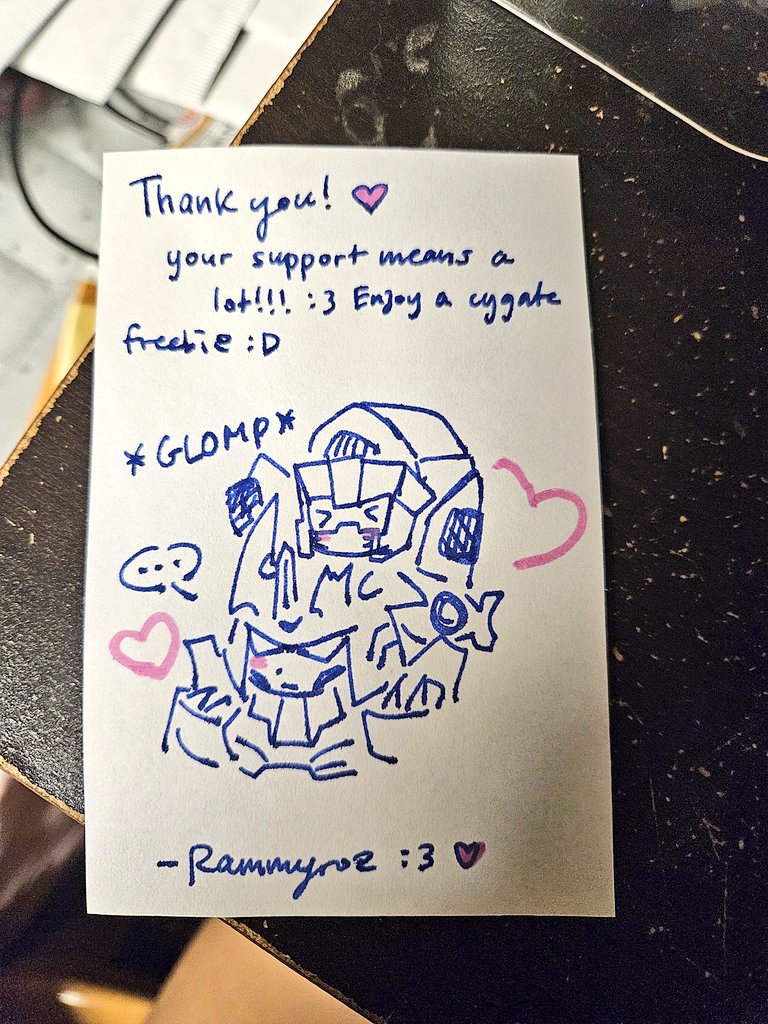 Thank you! ♥
your support means a
lot!!! :3 Enjoy a cygate
freebie :D
*GLOMP*
...
- Rammyroe :3 ♥